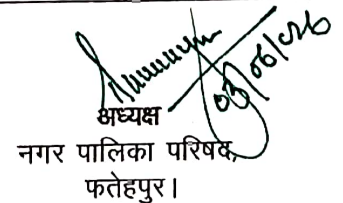 03/06/026
अध्यक्ष
नगर पालिका परिषद,
फतेहपुर।